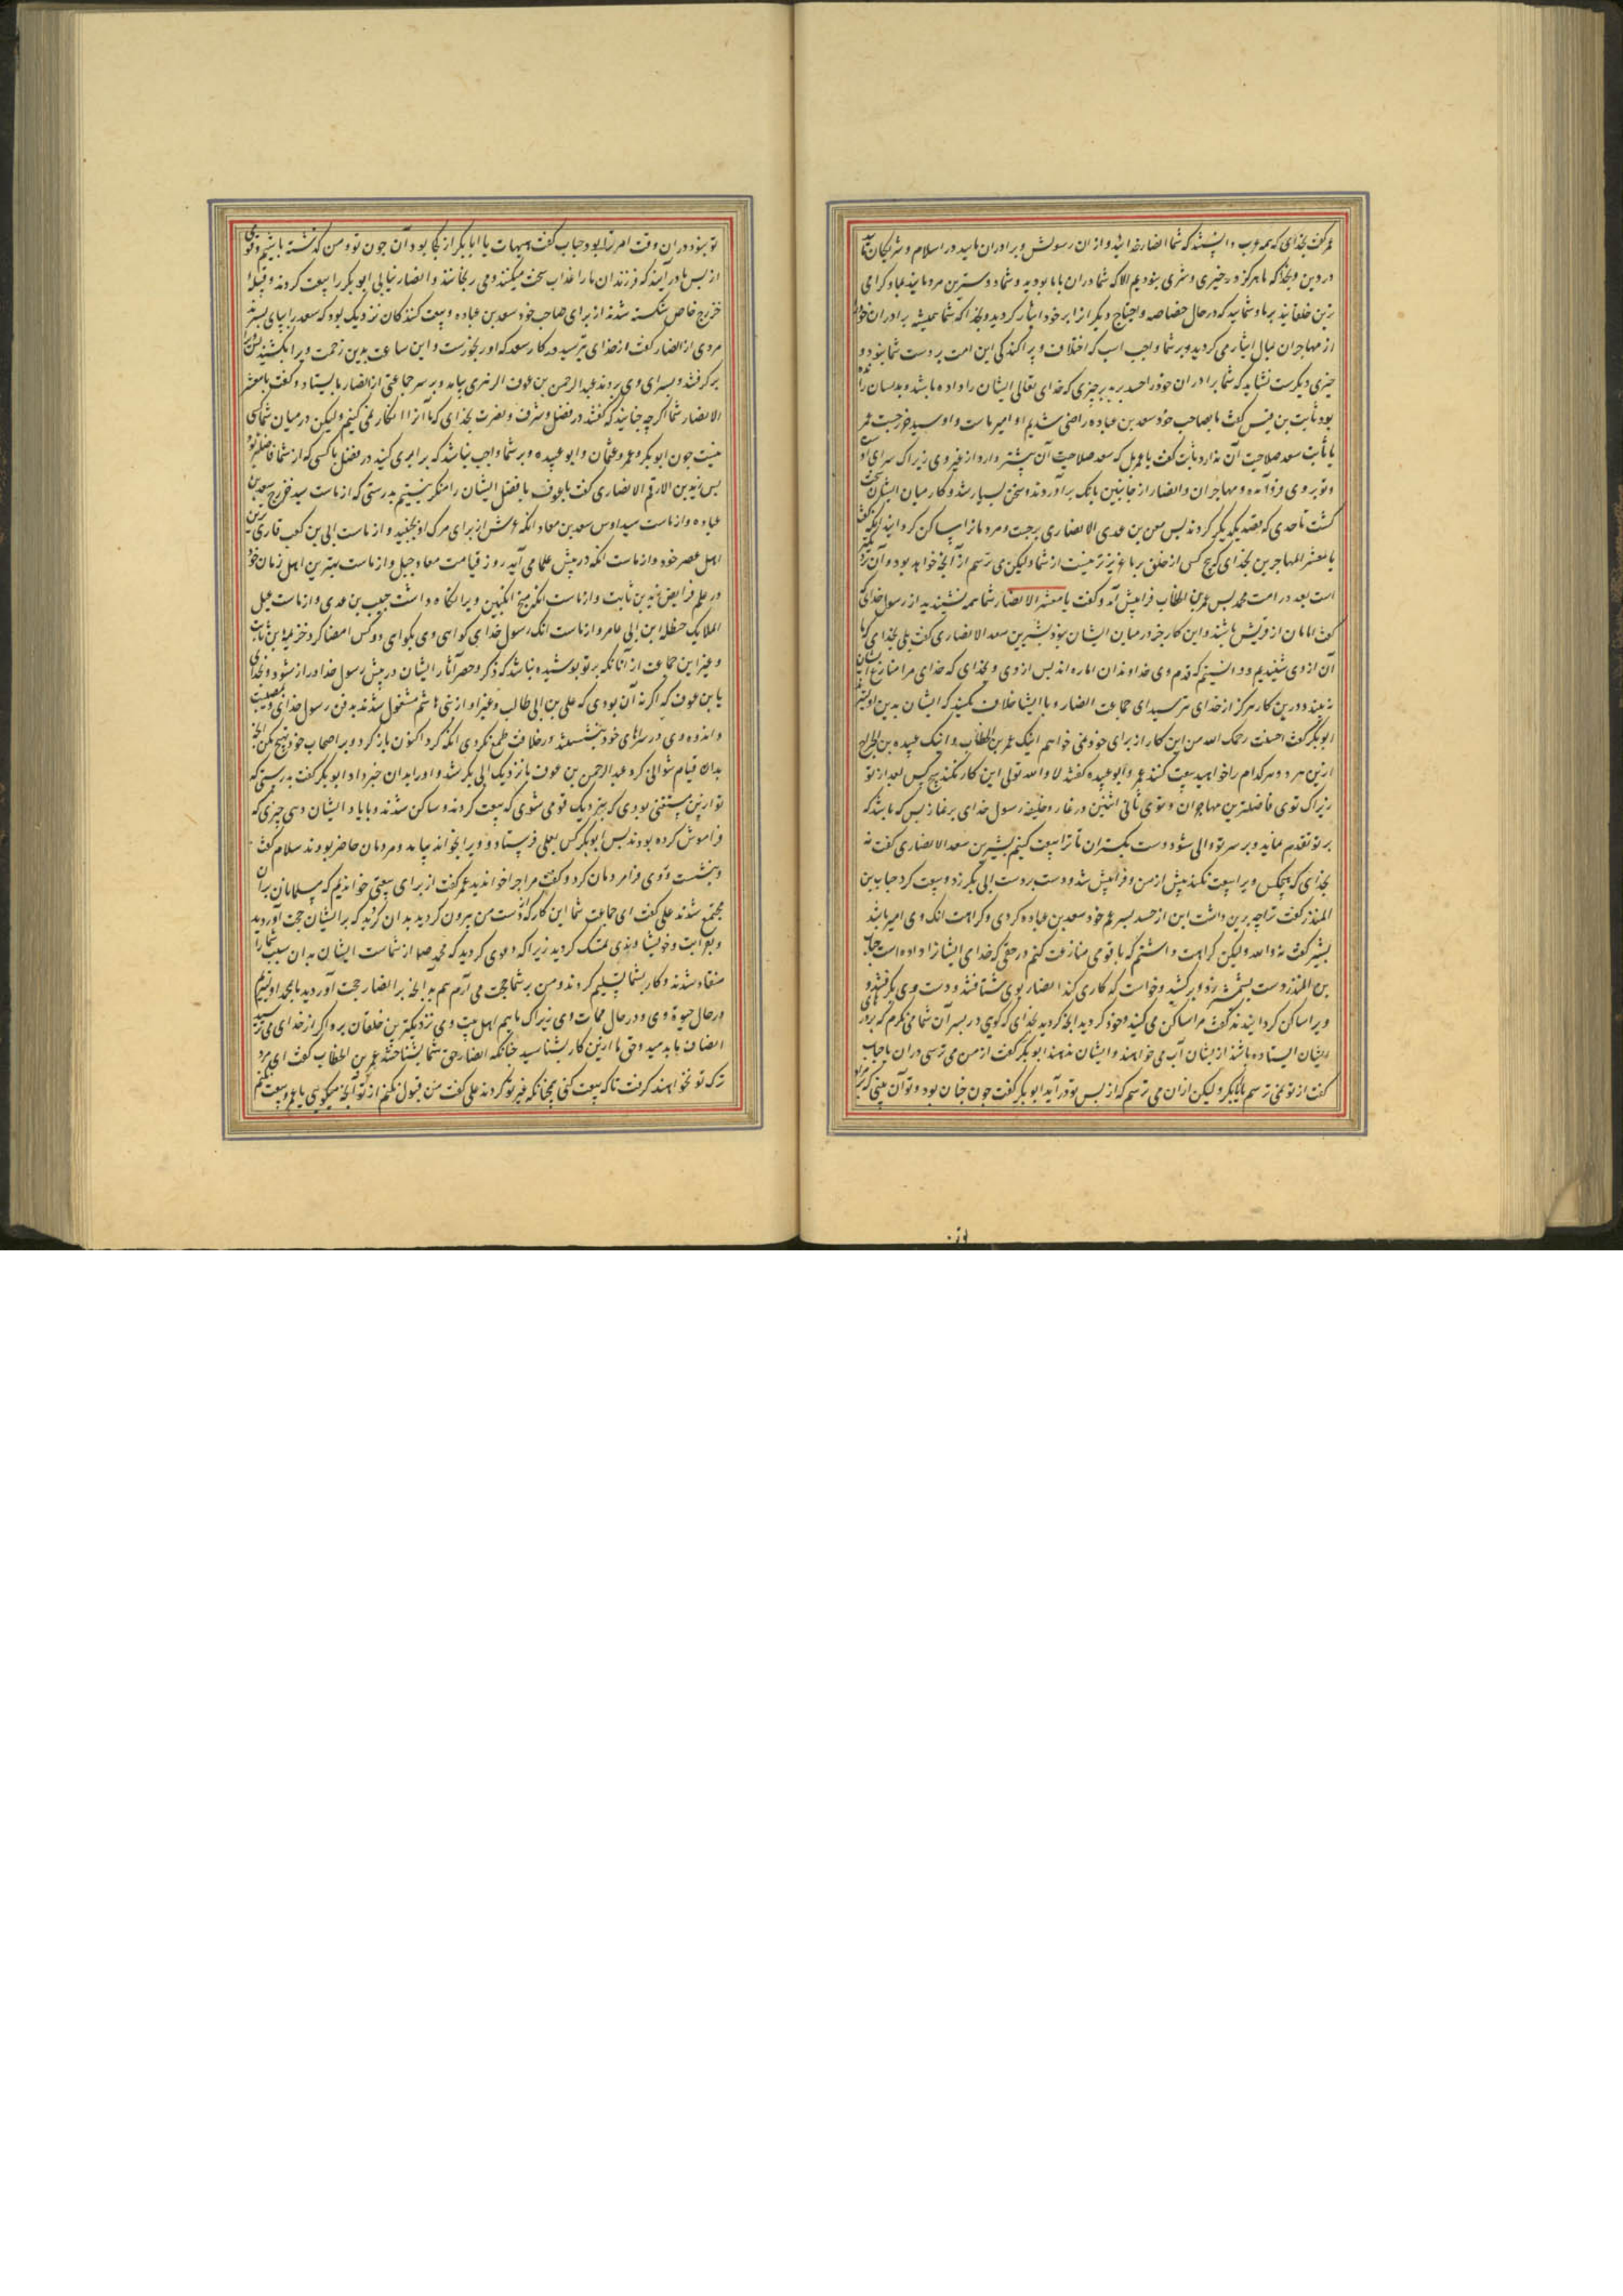 عمر گفت بخدای که همه عرب دانستند که شما انصار خدائید و از ان رسولش و برادران مائید در اسلام و شریکان مائید
در دین و بخدا که ما هرگز در خیری و شری نبودیم الا که شما در ان با ما بودید و شما دوسترین مردمانید بما و کرامی
ترین خلقانید بر ما و شمائید که در حال خصاصه و احتیاج دیگر انرا بر خود ایثار کردید و بخدا که شما همیشه برادران خود
از مهاجران بمال ایثار می کردید و بر شما واجب است که اختلاف و پراکندگی این امت بر دست شما نبود و
چیزی دیگرست نشاید که شما برادران خود را حسد برید بر چیزی که خدای تعالی ایشان را داده باشد و بدیشان
بود ثابت بن قیس گفت ما بصاحب خود سعد بن عباده راضی شدیم او امیر ماست و او سید خزرجست عمر
یا ثابت سعد صلاحیت آن ندارد ثابت گفت یا عمر بل که سعد صلاحیت آن بیشتر دارد از غیر وی زیراک سرای
و تو بر وی فرود آمده و مهاجران و انصار از جانبین بانک برآوردند و سخن بسیار شد و کار میان ایشان سخت
گشت تا حدی که قصد یکدیگر کردند بس معن بن عدی الانصاری برجست و مردمانرا ساکن کردانید انکه گفت
یا معشر المهاجرین بخدای که هیچ کس از خلق بر ما عزیزتر نیست از شما ولیکن می ترسم از آنچه خواهد بود و آن
است بعد در امت محمد بس عمر بن الخطاب فرا پیش آمد و گفت یا معشر الانصار شما همه نشنیدید از رسول خدای که
گفت امامان از قریش باشند و این کار جز در میان ایشان نبود بشیر بن سعد الانصاری گفت بلی بخدای که ما
آن از وی شنیدیم و دانستیم که قوم وی خداوندان اماره اند بس از وی و بخدای که خدای مرا منازع ایشان
نه بیند و درین کار هرگز از خدای بترسید ای جماعت انصار و با ایشا خلاف مکنید که ایشان بدین
ابوبکر گفت احسنت رحمک الله من این کار از برای خود نمی خواهم اینک عمر بن الخطاب و اینک عبیده بن الجراح
ازین هر دو هر کدام را خواهید بیعت کنند عمر و ابو عبیده گفتند لا والله تولی این کار نکند هیچ کس بعد از تو
زیراک توی فاضلترین مهاجران و توی ثانی اثنین در غار و خلیفه رسول خدای بر نماز بس که باشد که
بر تو تقدم نماید و بر سر تو والی شود دست بکستران تا ترا بیعت کنیم بشیر بن سعد الانصاری گفت نه
بخدای که هیچکس ویرا بیعت نکند پیش از من و فرا پیش شد و دست بر دست ابی بکر زد و بیعت کرد حباب بن
المنذر گفت ترا چه برین داشت این از حسد پسر عم خود سعد بن عباده کردی و کراهت انک وی امیر باشد
بشیر گفت نه والله ولیکن کراهت داشتم که با قومی منازعت کنم در حقی که خدای ایشانرا داده است حباب
بن المنذر دست بشمشیر زد و برکشید و خواست که کاری کند انصار بوی شتافتند و دست وی بگرفتند و
ویرا ساکن کردانیدند گفت مرا ساکن می کنید و خود کردید انچه کردید بخدای که کویی در پسران شما می نکرم که بر در
ایشان ایستاده باشند از یشان آب می خواهند و ایشان ندهند ابوبکر گفت از من می ترسی در ان یا حباب
گفت از تو نمی ترسم یا ابابکر ولیکن از ان می ترسم که از بس تو در آید ابوبکر گفت چون چنان بود و تو آن بینی که
تو نبود در ان وقت امر ترا بود حباب گفت هیهات یا ابابکر از کجا بود آن چون تو و من کذشته باشیم و قومی
از بس ما در آیند که فرزندان ما را عذاب سخت میکنند و می رنجانند و انصار تتابی ابوبکر را بیعت کردند و قبیله
خزرج خاص شکسته شدند از برای صاحب خود سعد بن عباده و بیعت کنندکان نزدیک بود که سعد را بپای بسپرند
مردی از انصار گفت از خدای بترسید در کار سعد که او رنجورست و این ساعت بدین زحمت ویرا بکشید
برگرفتند و بسرای وی بردند عبد الرحمن بن عوف الزهری بیامد و بر سر جماعتی از انصار بایستاد و گفت یا معشر
الانصار شما اگر چه چنانید که گفتند در فضل و شرف و نصرت بخدای که ما آنرا انکار نمی کنیم ولیکن در میان شما کسی
نیست چون ابوبکر و عمر و عثمان و ابو عبیده و بر شما واجب نباشد که برابری کنید در فضل با کسی که از شما فاضلتر بود
بس زید بن الارقم الانصاری گفت یا بن عوف ما فضل ایشان را منکر نیستیم بدرستی که از ماست سید خزرج سعد بن
عباده و از ماست سید اوس سعد بن معاد انکه عرش از برای مرک او بجنبید و از ماست ابی بن کعب قاری ترین
اهل عصر خود و از ماست انکه در پیش علما می آید روز قیامت معاد جبل و از ماست بهترین اهل زمان خود
در علم فرایض زید بن ثابت و از ماست انکه منج انکبین ویرا نکاه داشت حبیب بن عدی و از ماست غسیل
الملائک حنظله ابن ابی عامر و از ماست انک رسول خدای کواهی وی بکواهی دو کس امضا کرد خزیمه بن ثابت
و غیر این جماعت از آنانکه بر تو پوشیده نباشد که ذکر و حصر آثار ایشان در پیش رسول خدا دراز شود و بخدای
یا بن عوف که اگر نه آن بودی که علی بن ابی طالب و غیر او از بنی هاشم مشغول شدند بدفن رسول خدای و بمصیبت
و اندوه وی در سراهای خود بنشستند در خلافت طمع نکردی انکه کرد اکنون بازکرد و بر اصحاب خود تهییج مکن انچه
بدان قیام نتوانی کرد عبد الرحمن بن عوف با نزدیک ابی بکر شد و اورا بدان خبر داد ابوبکر گفت بدرستی که
تو ازین مستغنی بودی که بنزدیک قومی شوی که بیعت کردند و ساکن شدند و با یاد ایشان دهی چیزی که
فراموش کرده بودند بس ابوبکر کس بعلی فرستاد و ویرا بخواند بیامد و مردمان حاضر بودند سلام گفت
و بنشست و روی فرا مردمان کرد و گفت مرا چرا خواندید عمر گفت از برای بیعتی خواندیم که مسلمانان بران
مجتمع شدند علی گفت ای جماعت شما این کار که از دست من بیرون کردید بدان کردید که بر ایشان حجت آوردید
و بقرابت و خویشاوندی تمسک کردید زیراک دعوی کردید که محمد صلعم از شماست ایشان بدان سبب شما را
منقاد شدند و کار بشما تسلیم کردند و من بر شما حجت می آرم هم بدانچه بر انصار حجت آوردید ما بمحمد اولیتریم
در حال حیوة وی و در حال ممات وی زیراک ماییم اهل بیت وی و نزدیکترین خلقان برو اگر از خدای می ترسید
انصاف ما بدهید و حق ما ازین کار بشناسید چنانکه انصار حق شما بشناختند عمر بن الخطاب گفت ای مرد
ترک تو نخواهند کرفت تا که بیعت کنی همچنانکه غیر تو کردند علی گفت من قبول نکنم از تو آنچه میکویی یا عمر و بیعت نکنم